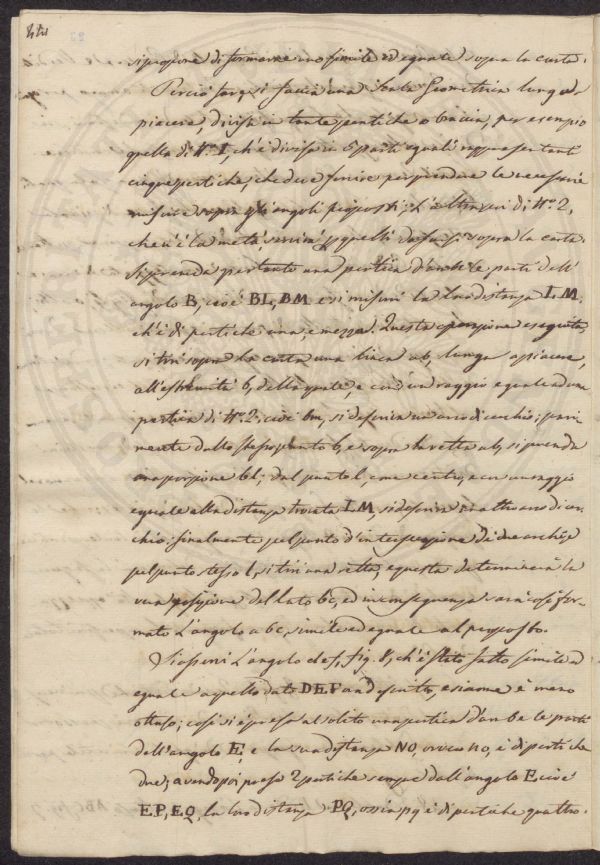 si propone di formarne uno simile ed eguale sopra la carta.
Perciò fare, si faccia una Scala Geometrica lunga a
piacere, divisa in tante pertiche o braccia, per esempio
quella di N.º 1, ch'è divisa in 6 parti eguali rappresentanti
cinque pertiche, che deve servire per prendere le necessarie
misure sopra gli angoli proposti; L'altra poi di N.º 2,
che n'è la metà, servirà per quelli da farsi sopra la carta.
Si prenda pertanto una pertica d'ambe le parti dell'
angolo B, cioè BL, BM e si misuri la loro distanza L.M.
ch'è di pertiche una, e mezza. Questa operazione eseguita,
si tiri sopra la carta una linea ab, lunga a piacere,
all'estremità b, della quale, e con un raggio eguale ad una
pertica di N.º 2, cioè bm, si descriva un arco di cerchio; pari-
mente dallo stesso punto b, e sopra la retta ab, si prenda
una porzione bl; dal punto l, come centro, e con un raggio
eguale alla distanza trovata L.M, si descriva un altro arco di cer-
chio: finalmente pel punto d'intersezione dei due archi, e
pel punto stesso b, si tiri una retta, e questa determinerà la
vera posizione del lato bc, ed in conseguenza sarà così for-
mato L'angolo abc, simile ed eguale al proposto.
Siassuni L'angolo def, fig. 8, ch'è stato fatto simile ed
eguale a quello dato DEF, e siccome è meno
ottuso; così si è preso al solito una pertica d'ambe le parti
dell'angolo E, e la sua distanza NO, ovvero no, è di pertiche
due; avendo poi preso 2 pertiche sempre dall'angolo E, cioè
EP, EQ, la loro distanza PQ, ossia pq è di pertiche quattro.